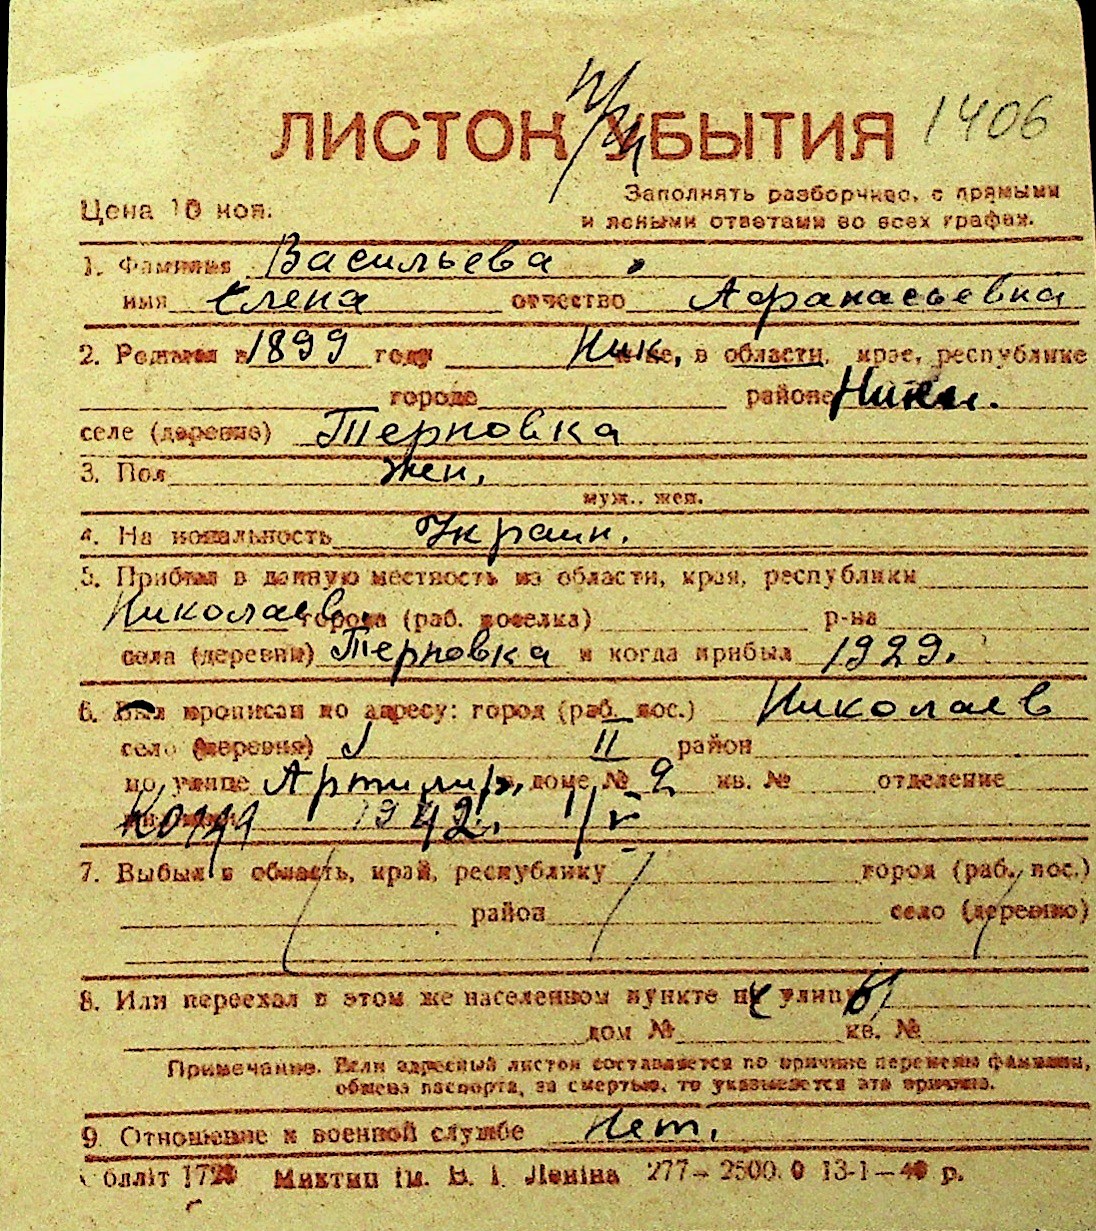 ЛИСТОК УБЫТИЯ 1406
Цена 10 коп.
Заполнять разборчиво, с прямыми
и ясными ответами во всех графах.
1. Фамилия Васильева
имя Елена отчество Афанасьевна
2. Родился в 1899 году Ник, в области, крае, республике
городе районе
селе (деревне) Терновка
3. Пол жен.
муж., жен.
4. Национальность Украин.
5. Прибыл в данную местность из области, края, республики
Николаев. города (раб. поселка) р-на
села (деревни) Терновка и когда прибыл 1929.
6. Был прописан по адресу: город (раб. пос.) Николаев
село (деревня) II район
по улице Артилир, доме № 2 кв. № отделение
1942.
7. Выбыл в область, край, республику город (раб. пос.)
район село (деревню)
8. Или переехал в этом же населенном пункте на улицу
дом № кв. №
Примечание. Если адресный листок составляется по причине перемены фамилии,
обмена паспорта, за смертью, то указывается эта причина.
9. Отношение к военной службе Нет.
Облліт 1720 Миктип ім. В. І. Леніна 277—2500.0 13-1—40 р.